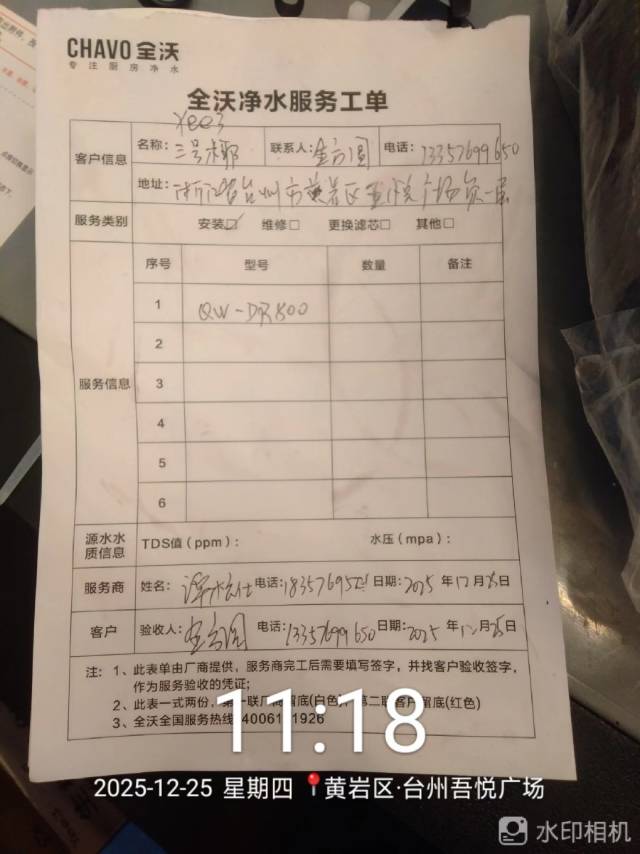 CHAVO 全沃
专注厨房净水
全沃净水服务工单
yee3
客户信息 名称: 三号椰 联系人: 电话: 13357699650
地址: 浙江省台州市黄岩区吾悦广场负一层
服务类别 安装☑ 维修□ 更换滤芯□ 其他□
服务信息
序号 型号 数量 备注
1 QW-DR800
2
3
4
5
6
源水水质信息 TDS值(ppm): 水压(mpa):
服务商 姓名: 电话: 日期: 2025年12月25日
客户 验收人: 电话: 13357699650 日期: 2025年12月25日
注: 1、此表单由厂商提供，服务商完工后需要填写签字，并找客户验收签字，
作为服务验收的凭证;
2、此表一式两份，第一联厂商留底(白色)，第二联客户留底(红色)
3、全沃全国服务热线
11:18
2025-12-25 星期四 黄岩区·台州吾悦广场
水印相机